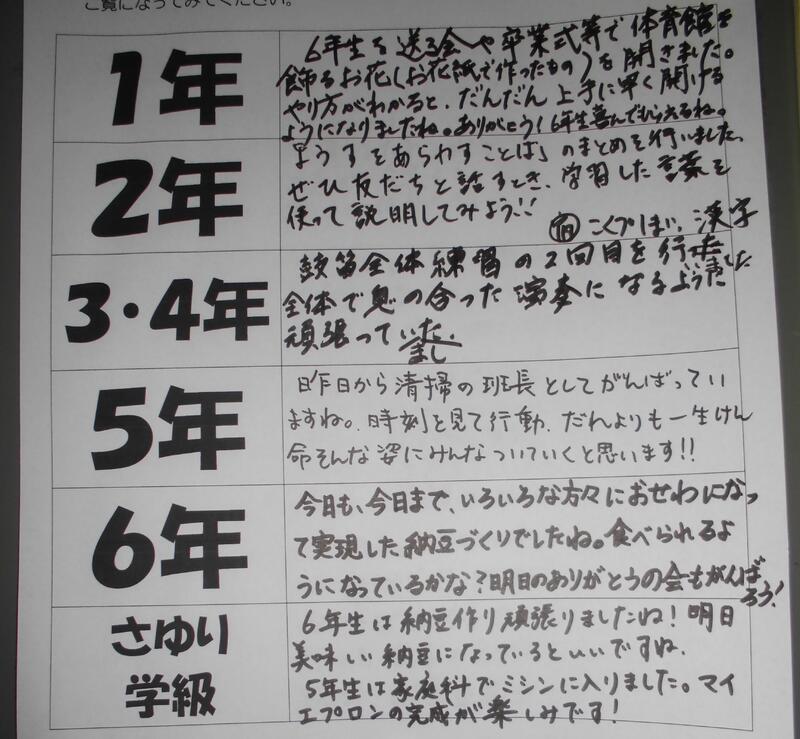 ご覧になってみてください。
1年
6年生を送る会や卒業式等で体育館を
飾るお花(お花紙で作ったもの)を開きました。
やり方がわかると、だんだん上手に早く開ける
ようになりましたね。ありがとう!6年生喜んでもらえるね。
2年
ようすをあらわすことば」のまとめを行いました。
ぜひ友だちと話すとき、学習した言葉を
使って説明してみよう!!
宿 こくプリ 漢字
3・4年
鼓笛全体練習の2回目を行いました
全体で息の合った演奏になるよう
頑張っていました。
5年
昨日から清掃の班長としてがんばってい
ますね。時刻を見て行動、だれよりも一生けん
命そんな姿にみんなついていくと思います!!
6年
今日も、今日まで、いろいろな方々におせわになっ
て実現した納豆づくりでしたね。食べられるよ
うになっているかな?明日のありがとうの会もがんば
ろう!
さゆり
学級
6年生は納豆作り頑張りましたね!明日
美味しい納豆になっているといいですね。
5年生は家庭科でミシンに入りました。マイ
エプロンの完成が楽しみです!